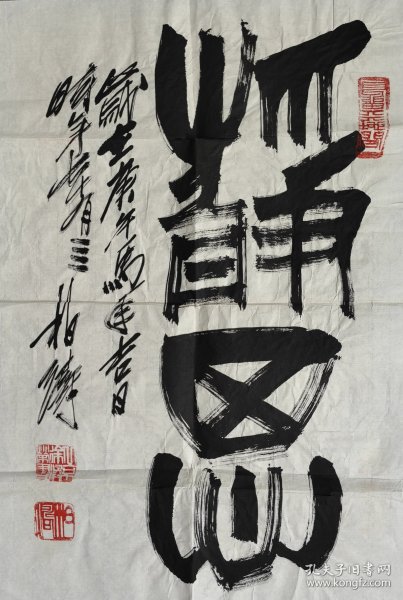 靜思
歲在庚午馬年吉日
時年有三 柏濤
孔夫子旧书网
www.kongfz.com